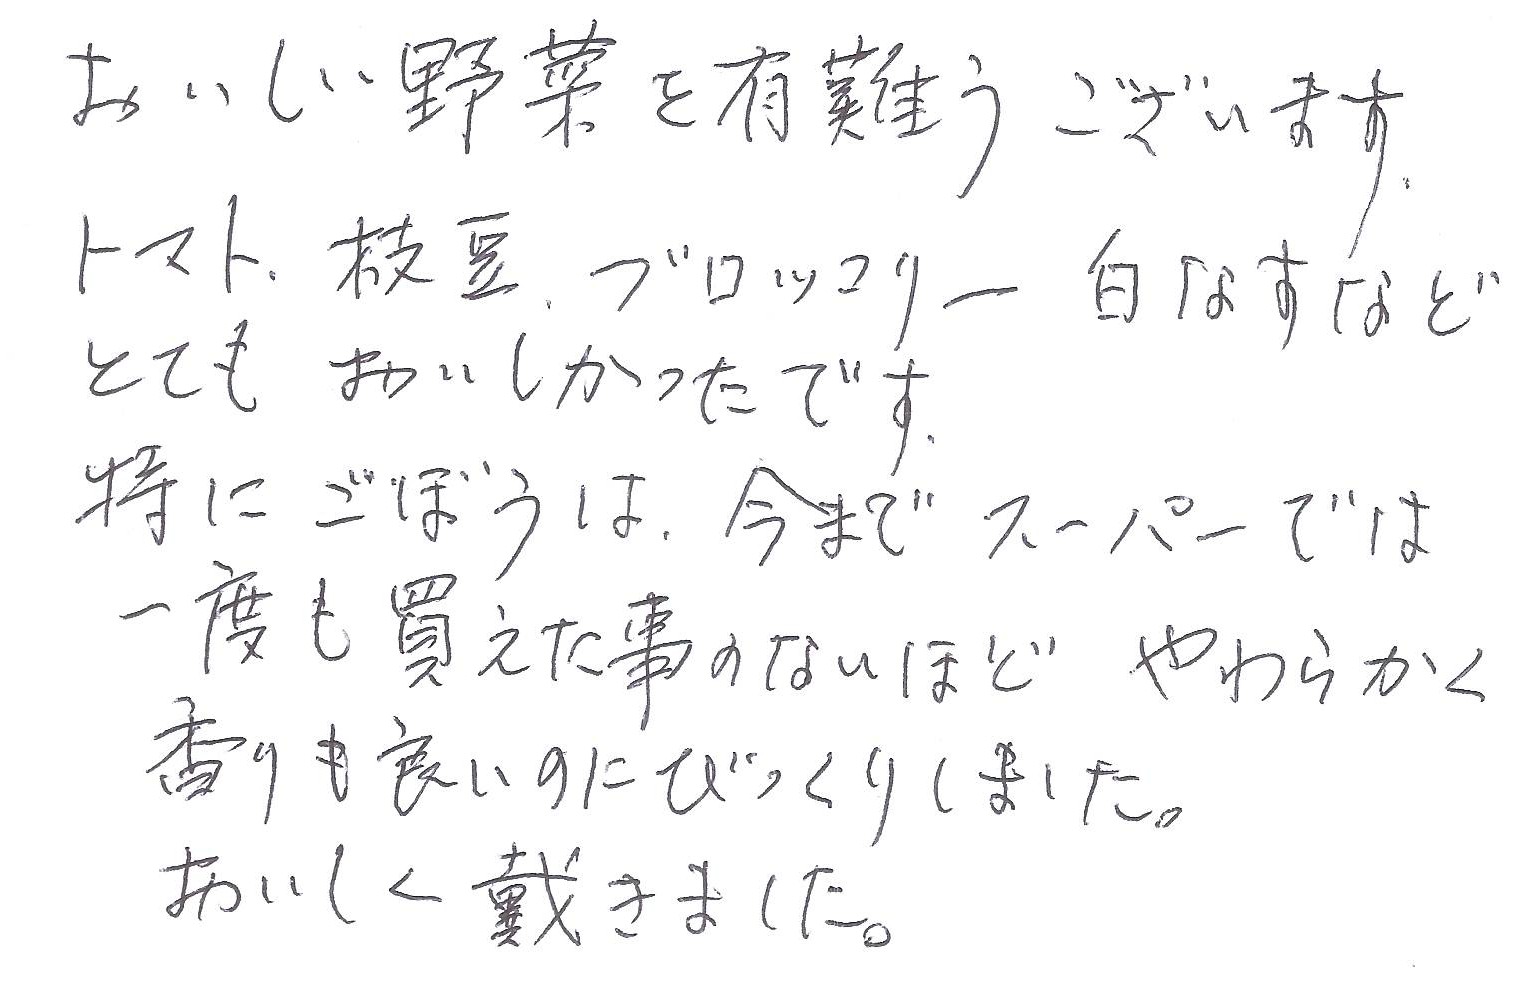 おいしい野菜を有難うございます.
トマト.枝豆.ブロッコリー白なすなど
とてもおいしかったです.
特にごぼうは.今までスーパーでは
一度も買えた事のないほどやわらかく
香りも良いのにびっくりしました。
おいしく戴きました。